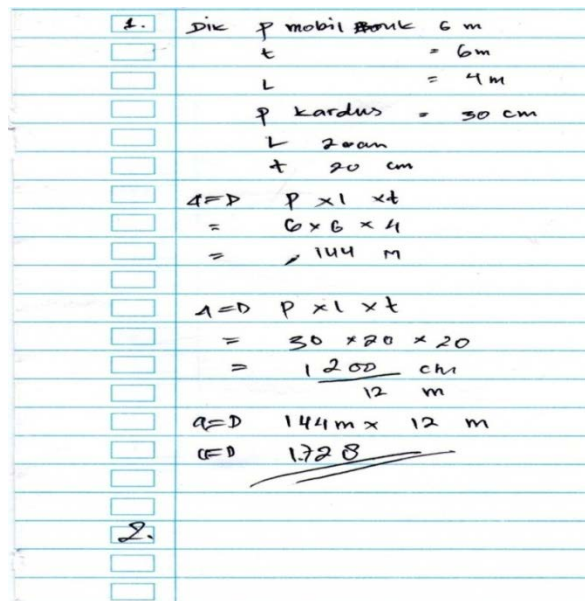 1. Dik P mobil uk 6 m
t = 6m
L = 4m
P kardus = 30 cm
L 20cm
t 20 cm
P x l x t
= 6 x 6 x 4
= 144 M
P x l x t
= 30 x 20 x 20
= 1200 cm
12 m
144m x 12 m
1.728
2.